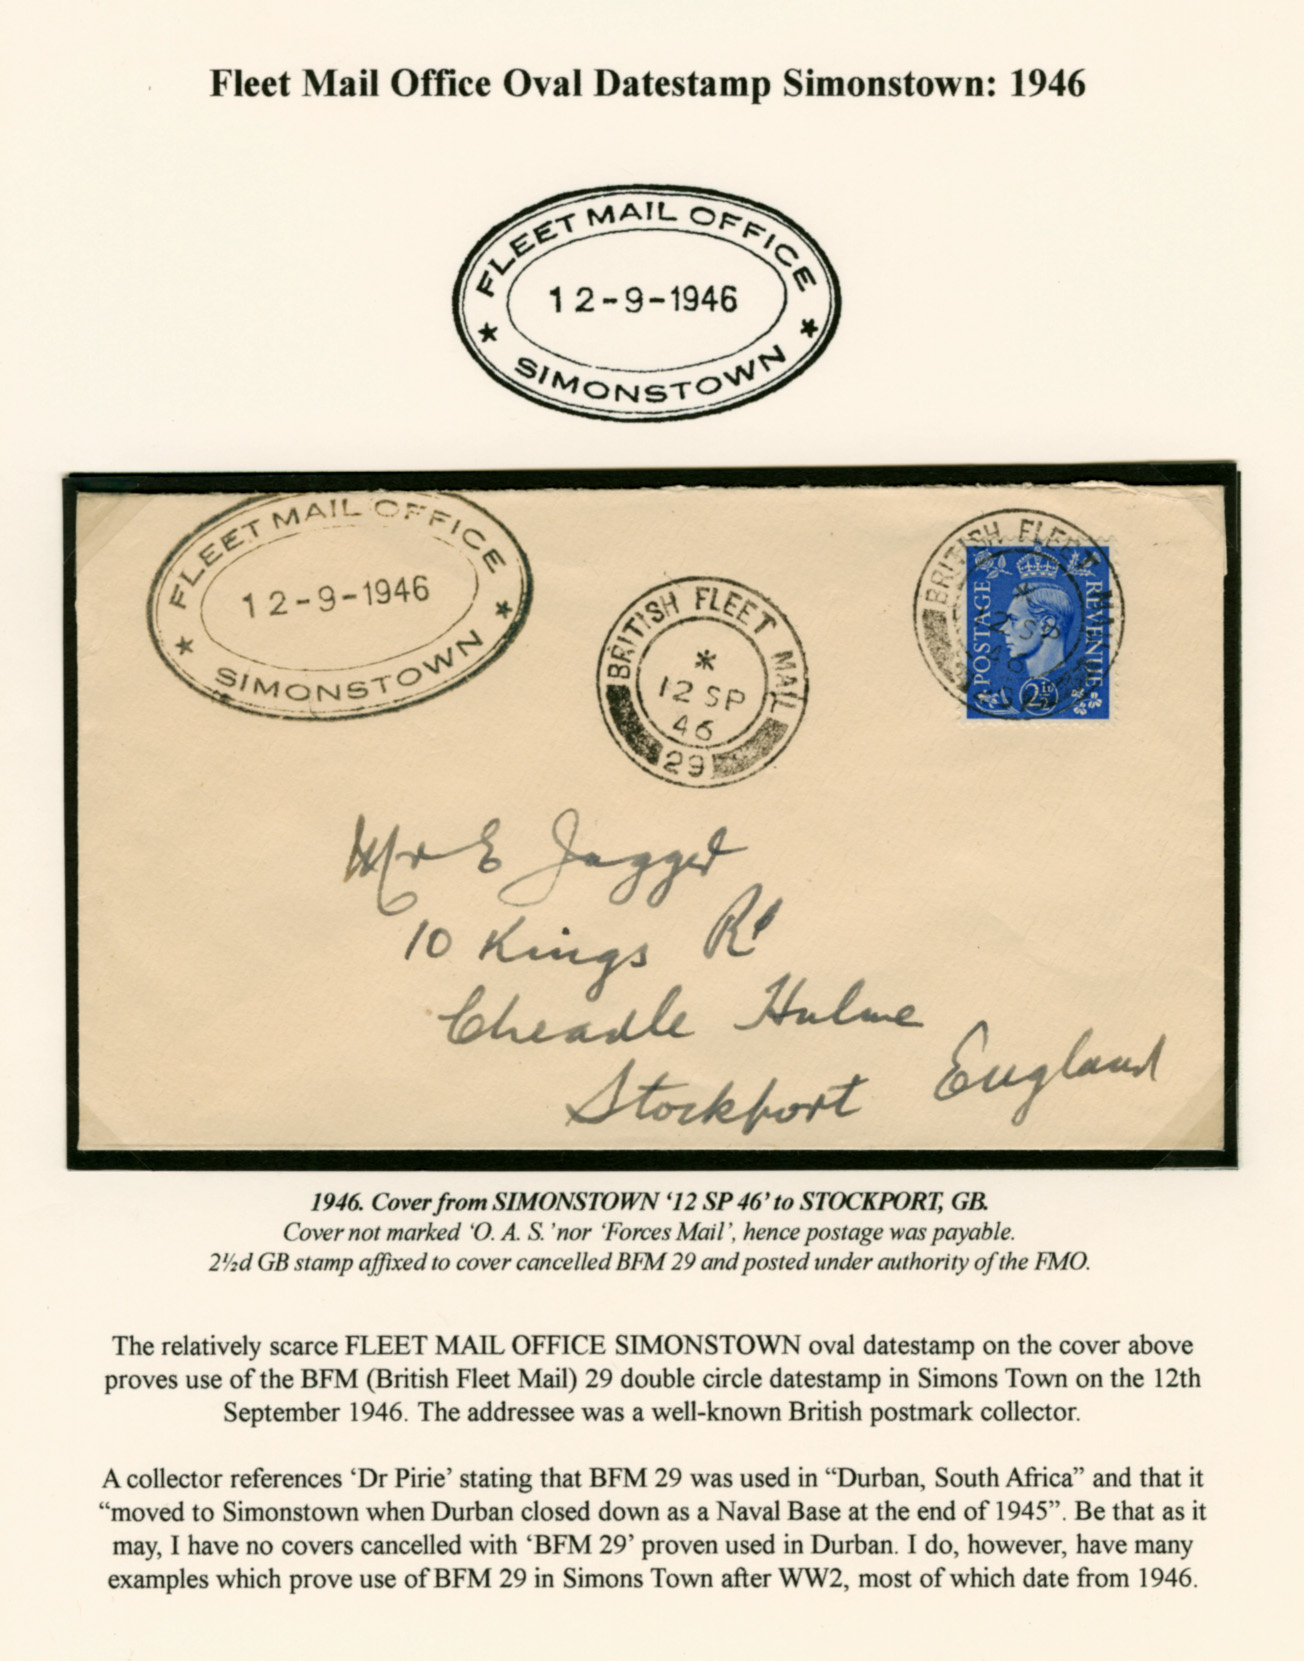 Fleet Mail Office Oval Datestamp Simonstown: 1946
FLEET MAIL OFFICE
12-9-1946
SIMONSTOWN
FLEET MAIL OFFICE
12-9-1946
SIMONSTOWN
BRITISH FLEET MAIL
12 SP
46
29
BRITISH FLEET
2 SP
46
POSTAGE
REVENUE
2½D
Mr E Jagger
10 Kings Rd
Cheadle Hulme
Stockport England
1946. Cover from SIMONSTOWN ‘12 SP 46’ to STOCKPORT, GB.
Cover not marked ‘O. A. S. ’nor ‘Forces Mail’, hence postage was payable.
2½d GB stamp affixed to cover cancelled BFM 29 and posted under authority of the FMO.
The relatively scarce FLEET MAIL OFFICE SIMONSTOWN oval datestamp on the cover above
proves use of the BFM (British Fleet Mail) 29 double circle datestamp in Simons Town on the 12th
September 1946. The addressee was a well-known British postmark collector.
A collector references ‘Dr Pirie’ stating that BFM 29 was used in “Durban, South Africa” and that it
“moved to Simonstown when Durban closed down as a Naval Base at the end of 1945”. Be that as it
may, I have no covers cancelled with ‘BFM 29’ proven used in Durban. I do, however, have many
examples which prove use of BFM 29 in Simons Town after WW2, most of which date from 1946.